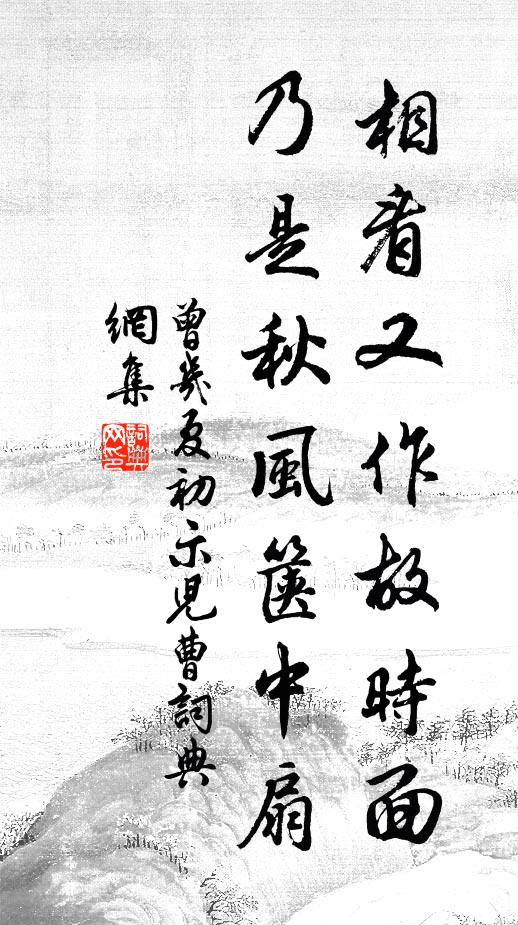 相看又作故時面
乃是秋風篋中扇
曾幾夏初示兒曹詞典
網集